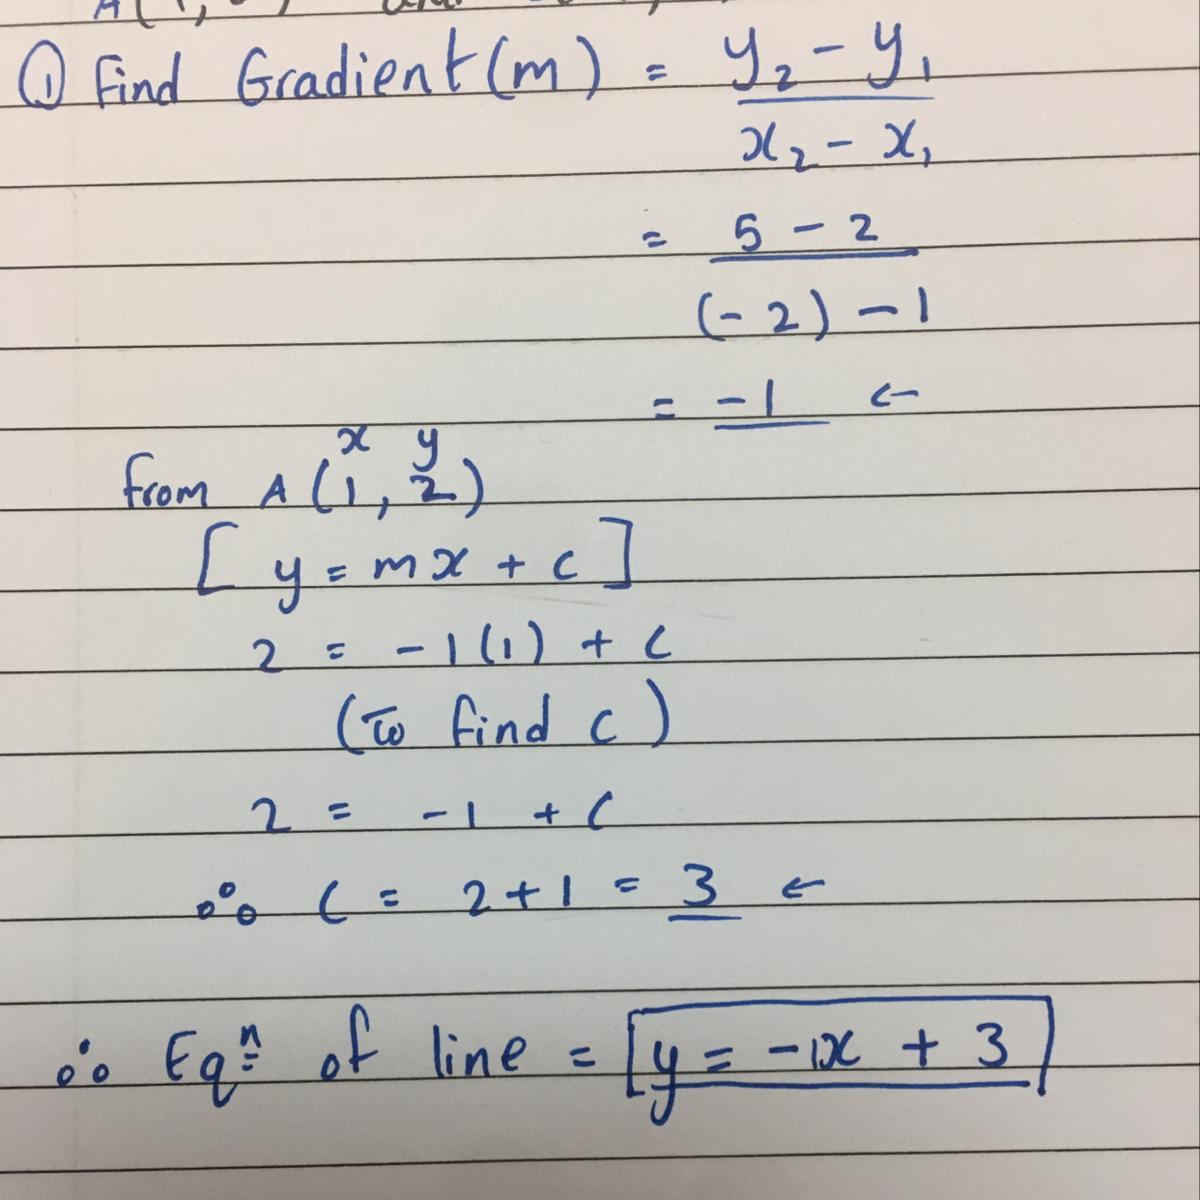 A(1,
① Find Gradient (m) = y₂ - y₁
x₂ - x₁
= 5 - 2
(-2) - 1
= -1 ←
x y
from A (1, 2)
[ y = mx + c ]
2 = -1(1) + c
(To find c)
2 = -1 + c
∴ c = 2+1 = 3 ←
∴ Eqⁿ of line = y = -1x + 3